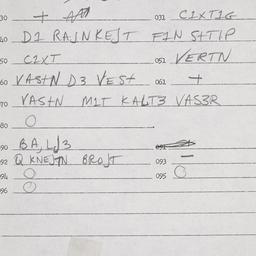 30 + 031 C1XT1G
40 D1 RAJNKEJT F1N STT1P
50 C1XT 051 VERTN
60 VASTN D3 VEST 061 +
70 VASTN M1T KALT3 VAS3R
80 O
90
92 Q KNEJTN BROJT 093 —
94 O 095 O
96 O